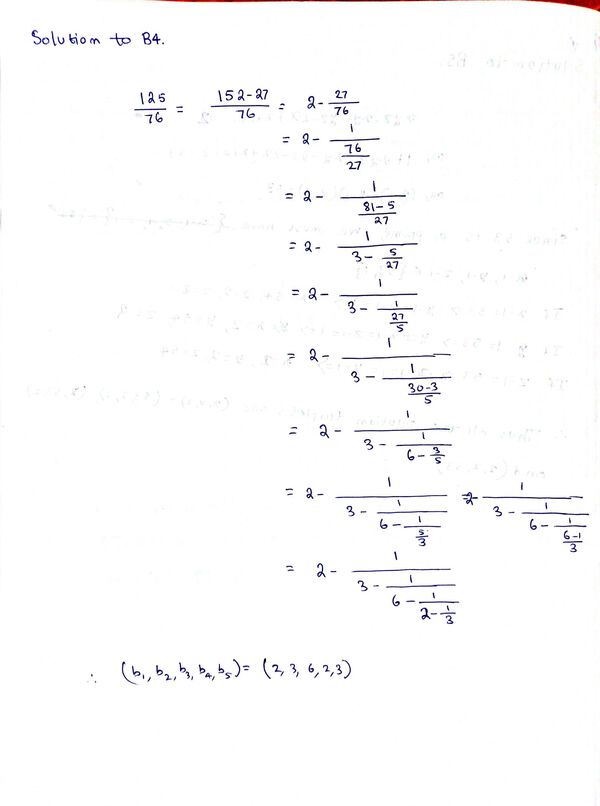 Solution to B4.
125/76 = (152-27)/76 = 2 - 27/76
= 2 - 1/(76/27)
= 2 - 1/((81-5)/27)
= 2 - 1/(3 - 5/27)
= 2 - 1/(3 - 1/(27/5))
= 2 - 1/(3 - 1/((30-3)/5))
= 2 - 1/(3 - 1/(6 - 3/5))
= 2 - 1/(3 - 1/(6 - 1/(5/3))) = 2 - 1/(3 - 1/(6 - 1/((6-1)/3)))
= 2 - 1/(3 - 1/(6 - 1/(2 - 1/3)))
∴ (b₁, b₂, b₃, b₄, b₅) = (2, 3, 6, 2, 3)